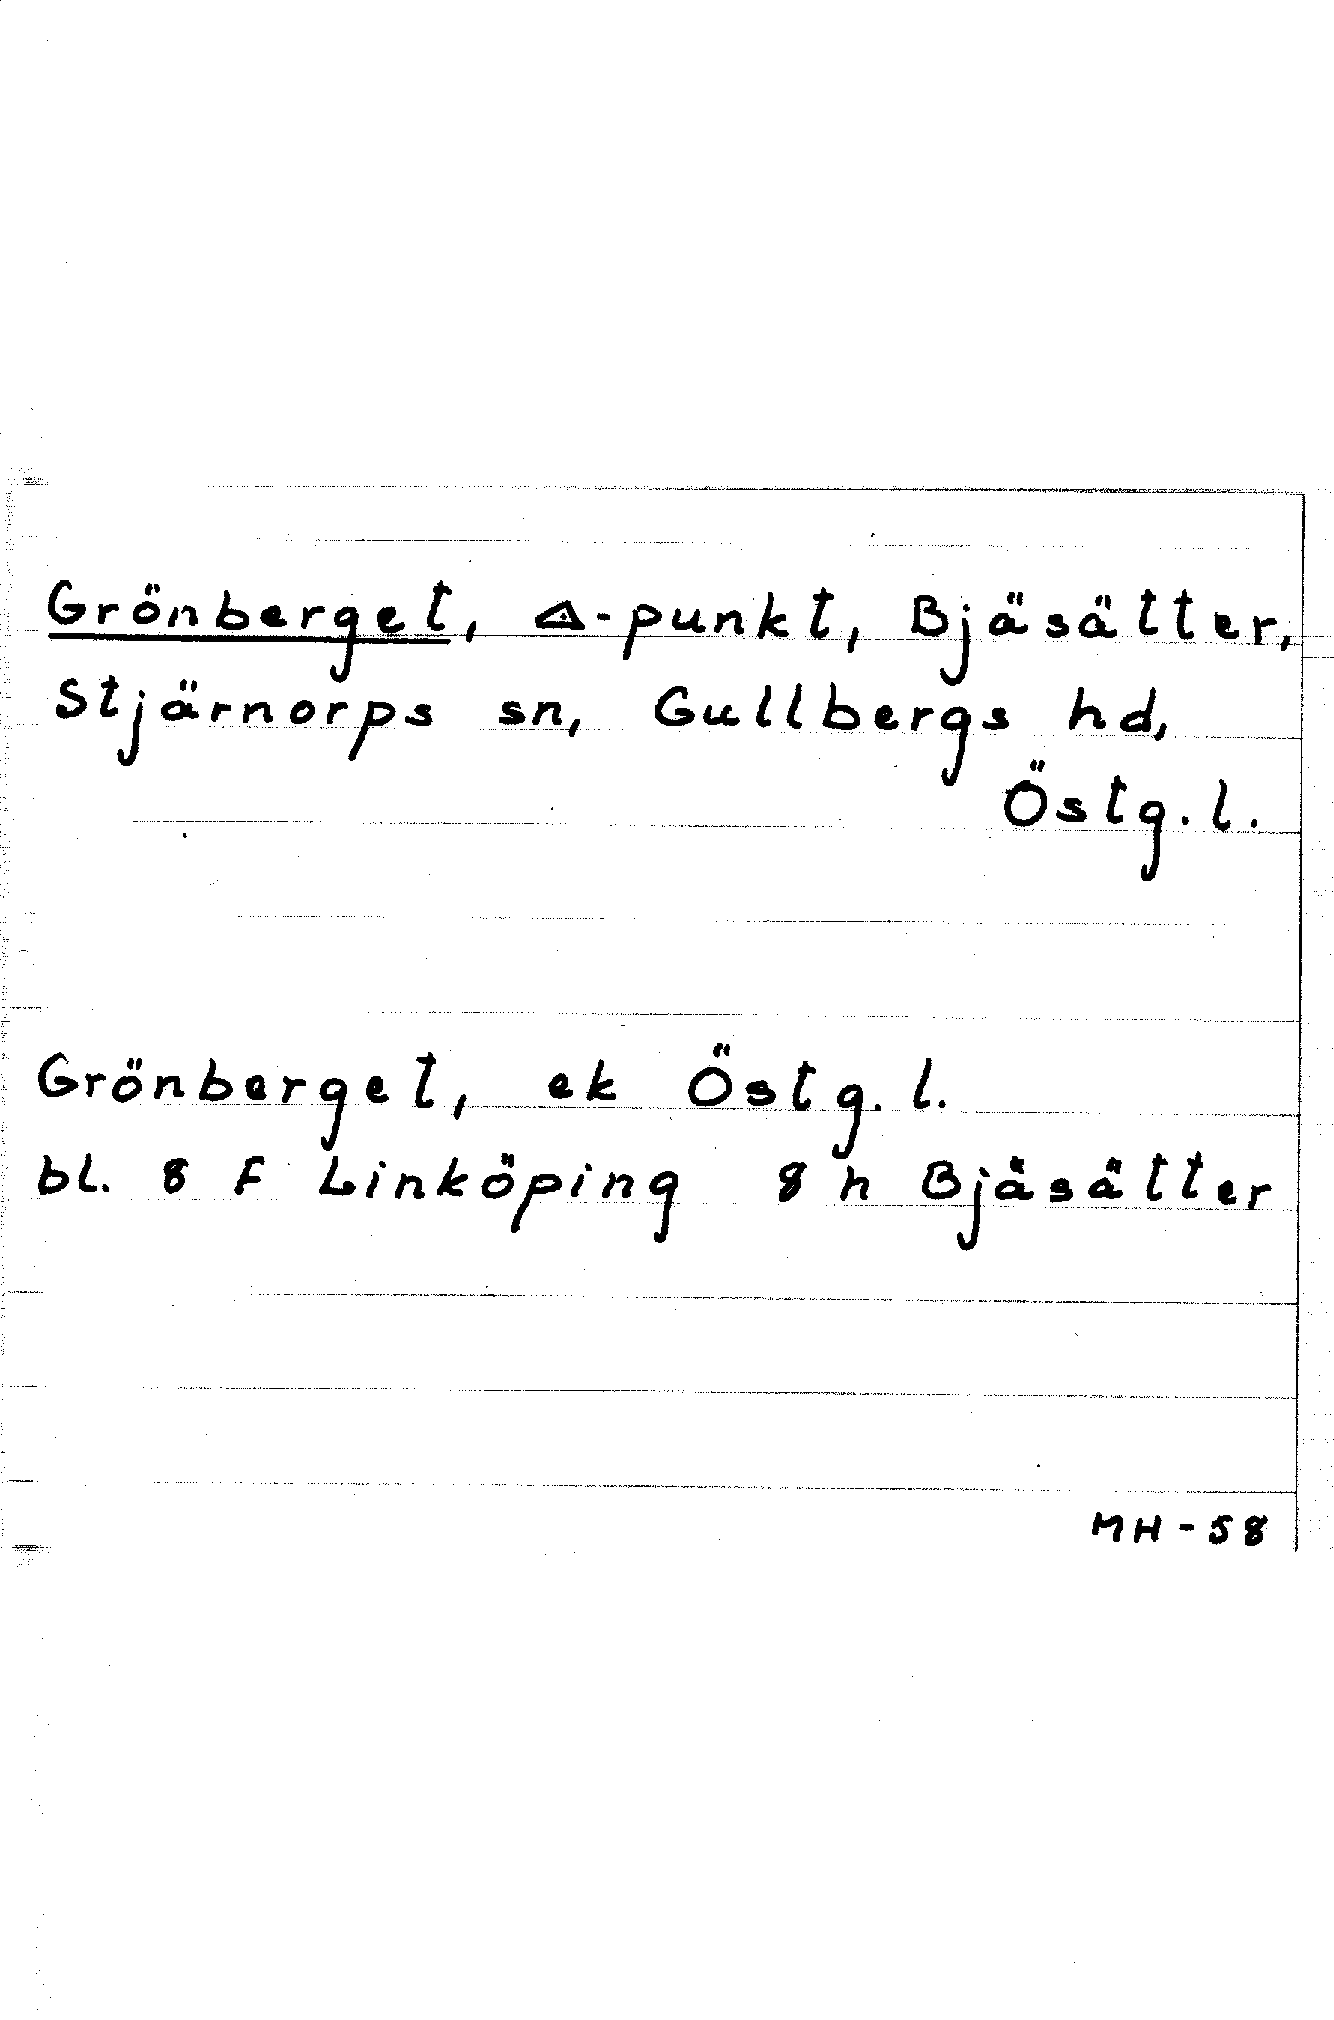 Grönberget, △-punkt, Bjäsätter,
Stjärnorps sn, Gullbergs hd,
Östg. l.
Grönberget, ek Östg. l.
bl. 8 F Linköping 8 h Bjäsätter
MH-58